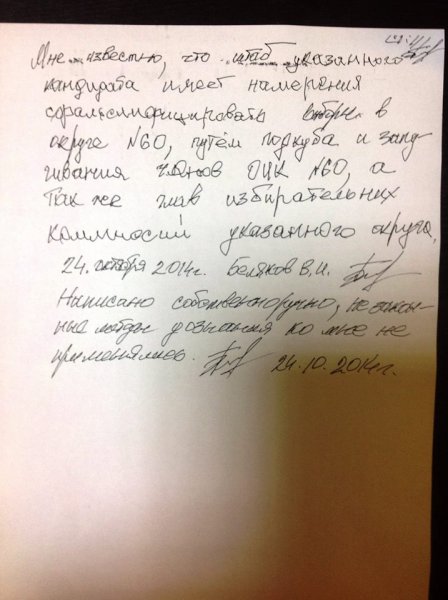 Мне известно, что штаб указанного
кандидата имеет намерения
сфальсифицировать выборы в
округе №60, путём подкупа и запу
гивания членов ОИК №60, а
так же глав избирательных
комиссий указанного округа.
24. октября 2014г. Беляков В.И.
Написано собственноручно, незакон-
ные методы дознания ко мне не
применялись. 24.10.2014г.